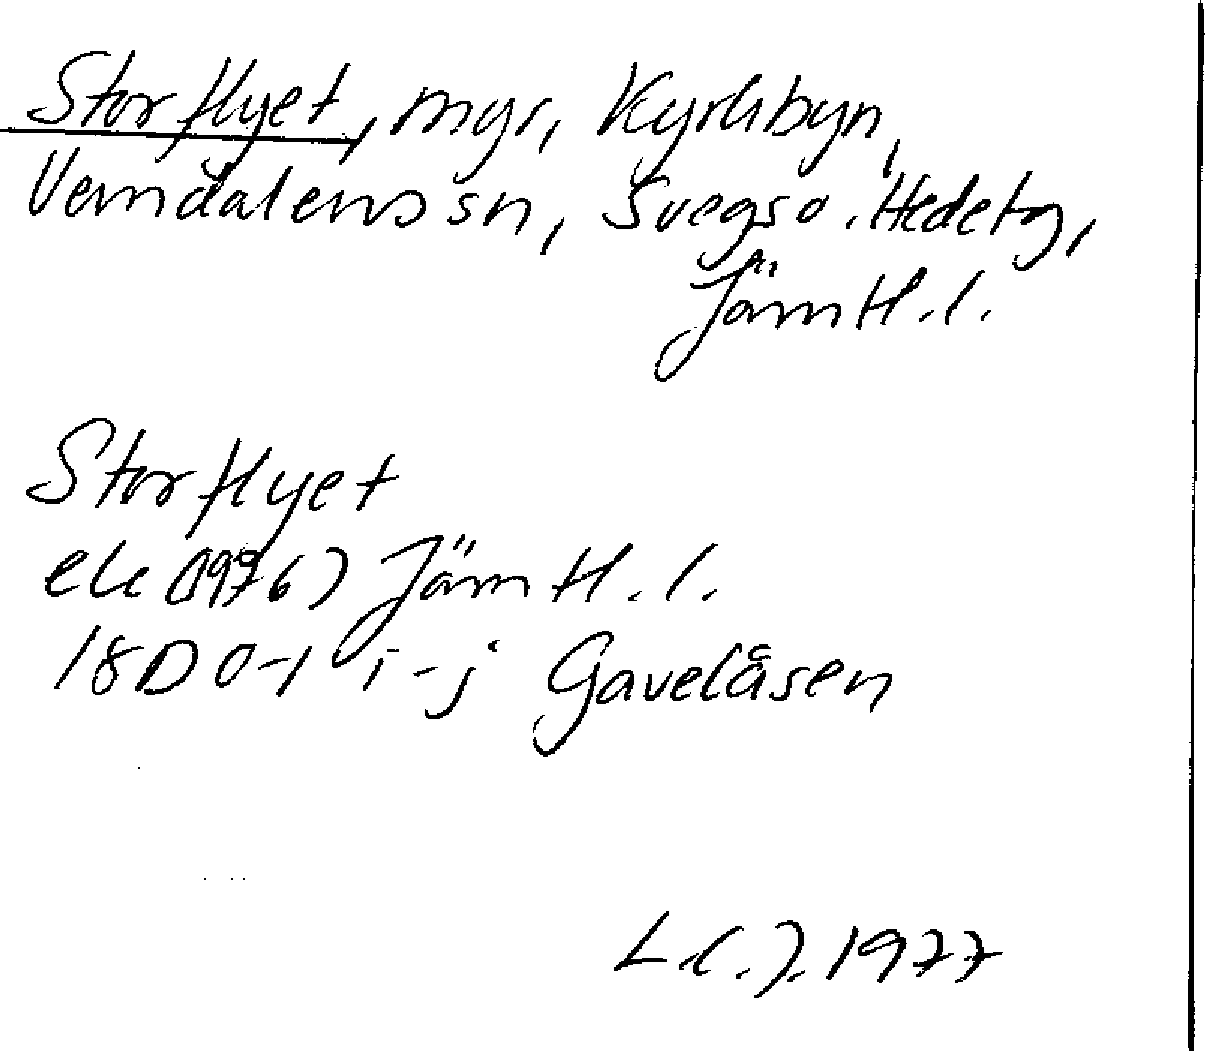 Storflyet, myr, Kyrkbyn,
Vemdalens sn, Svegs o. Hede tg,
Jämtl. l.
Storflyet
ek (1976) Jämtl. l.
18D 0-1 i-j Gavelåsen
L.C.J. 1977